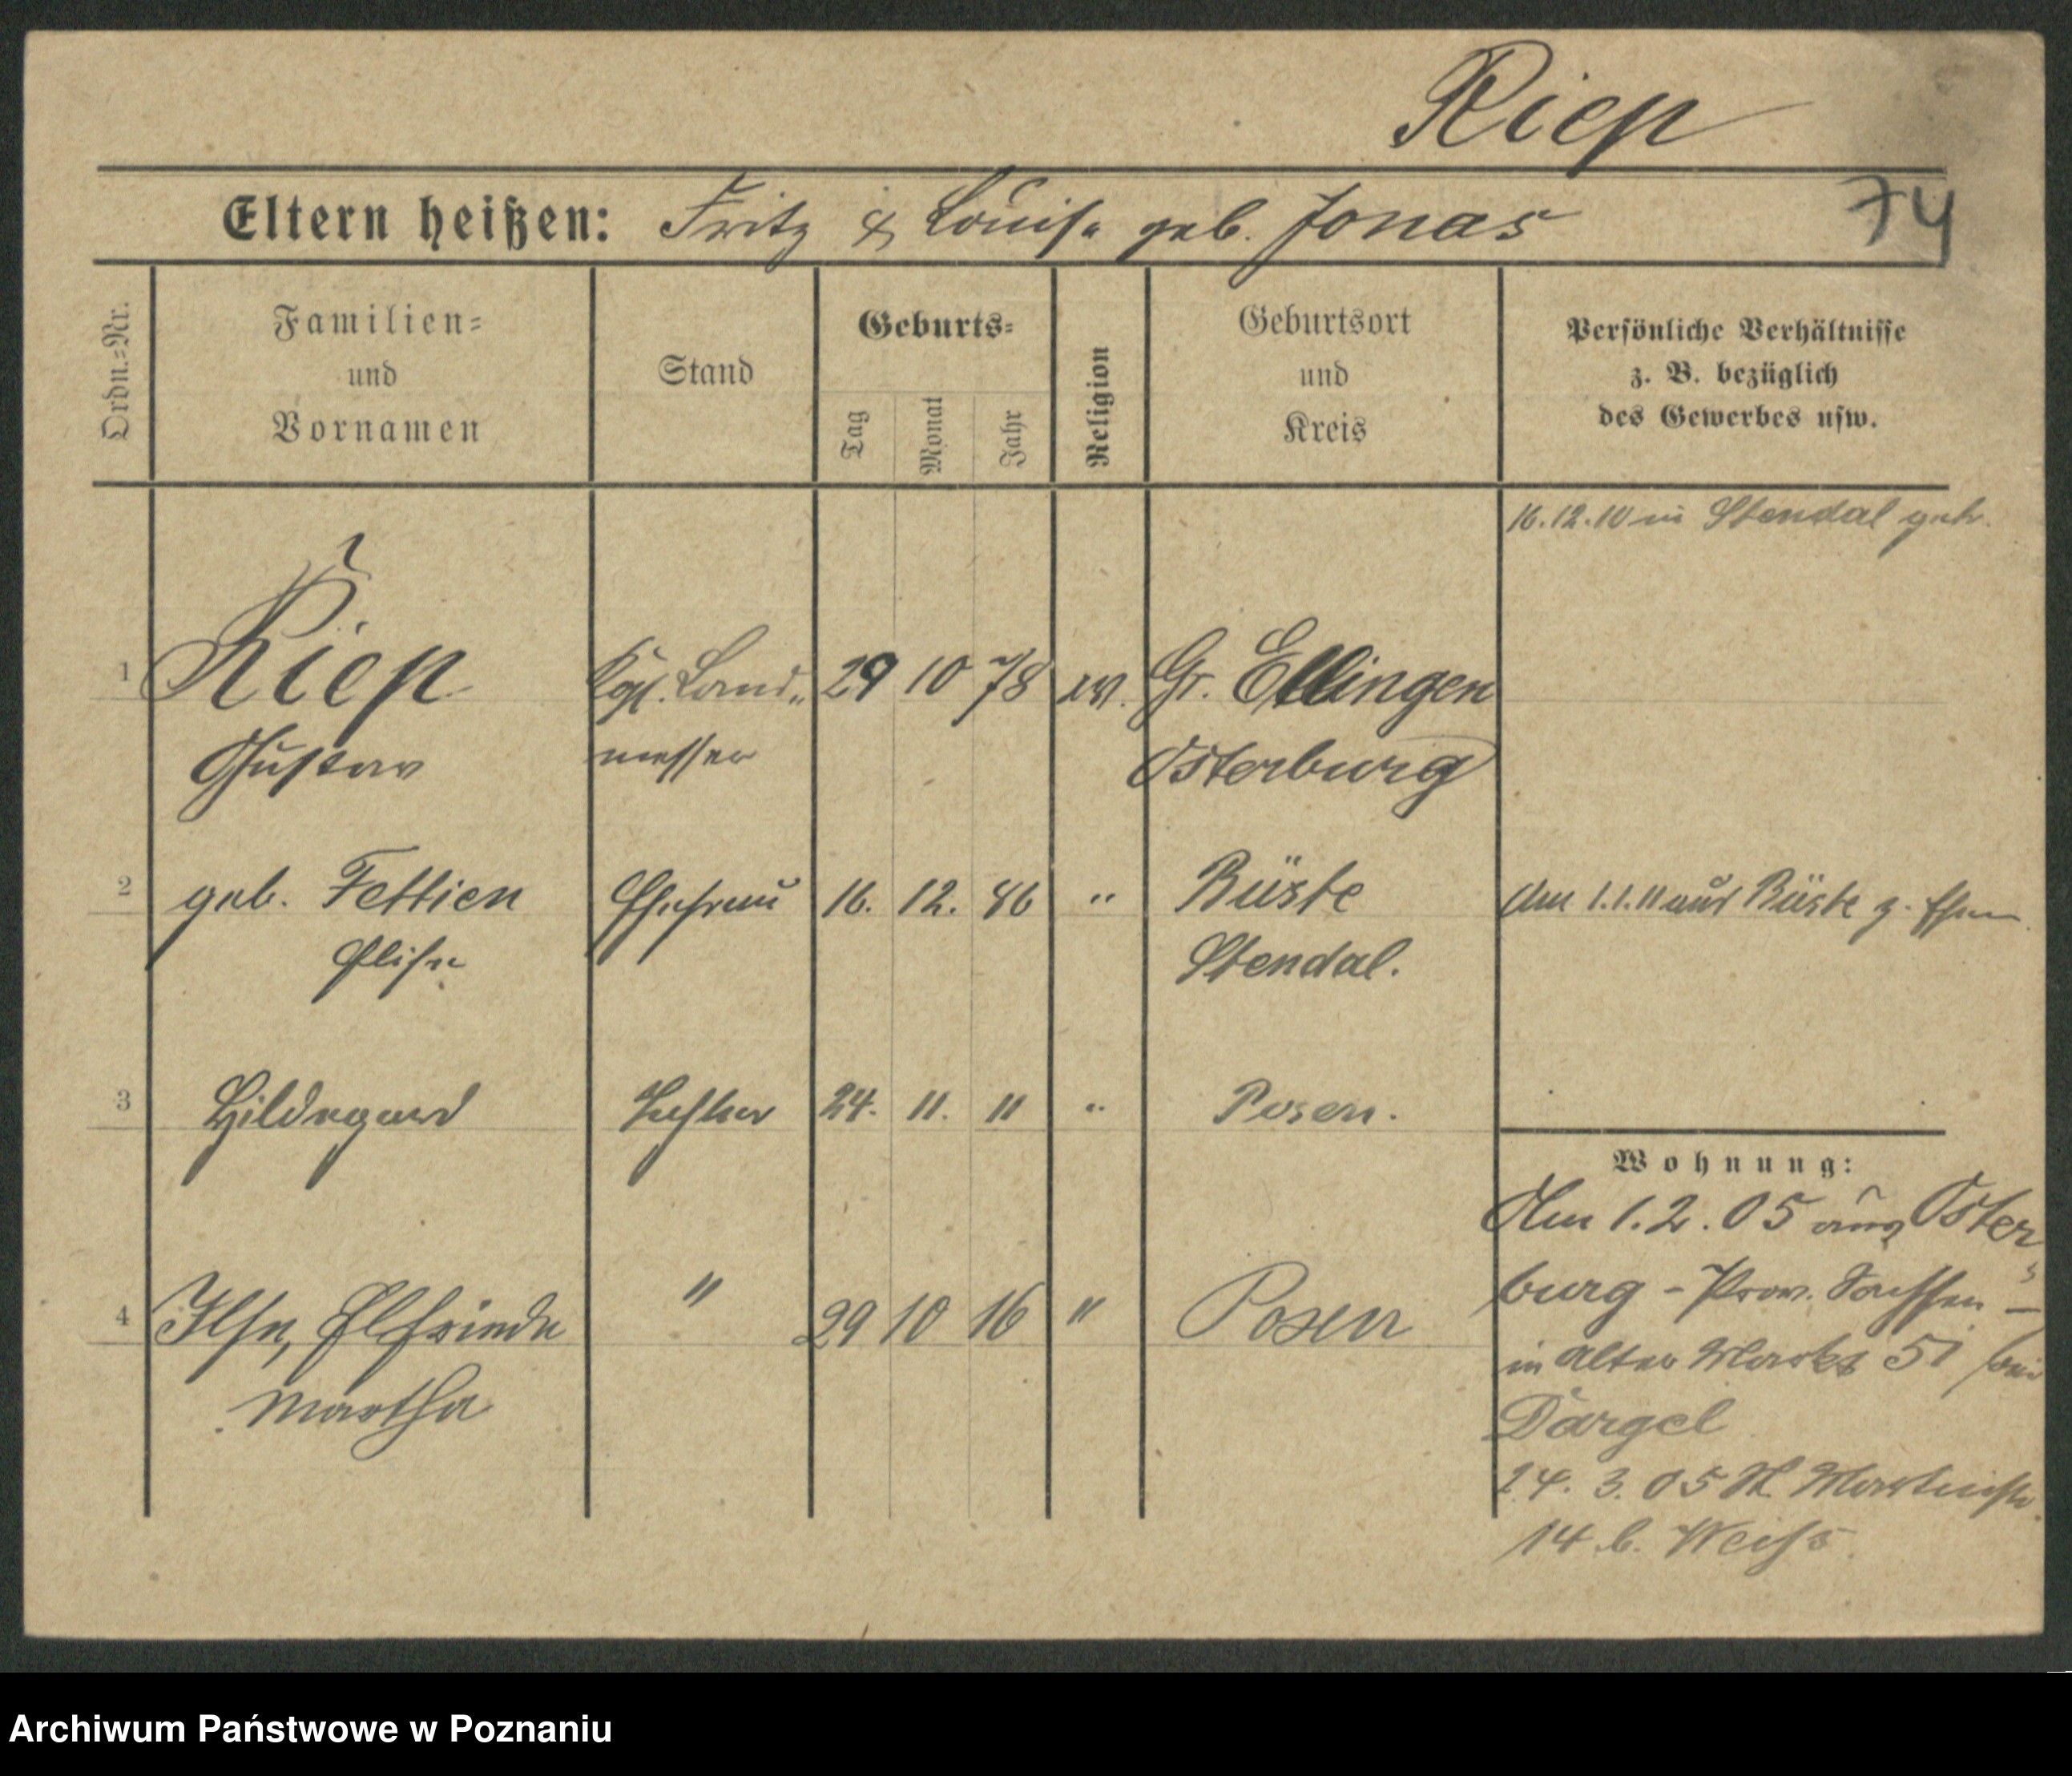 Riep
Eltern heißen: Fritz & Louise geb. Jonas
74
Ordn.=Nr.
Familien=
und
Vornamen
Stand
Geburts=
Tag
Monat
Jahr
Religion
Geburtsort
und
Kreis
Persönliche Verhältnisse
z. B. bezüglich
des Gewerbes usw.
16.12.10 in Stendal getr.
1 Riep Kgl. Land= 29 10 78 ev. Gr. Ellingen
Gustav messer Osterburg
2 geb. Fettien Ehefrau 16. 12. 86 " Büste am 1.1.11 aus Büste z. Ehem.
Elise Stendal.
3 Hildegard Tochter 24. 11. 11 " Posen.
4 Ilse, Elfriede " 29 10 16 " Posen
Martha
Wohnung:
Am 1.2.05 aus Oster
burg - Prov. Sachsen -
in alter Markt 51 bei
Dargel
24. 3. 05 W
14 b. Weiss
Archiwum Państwowe w Poznaniu